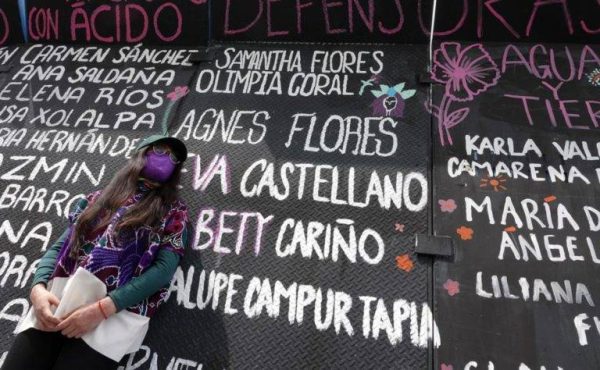 CON ÁCIDO
DEFENSORAS
CARMEN SÁNCHEZ
ANA SALDAÑA
ELENA RÍOS
XOLALPA
HERNÁNDE
SAMANTHA FLORES
OLIMPIA CORAL
AGNES FLORES
EVA CASTELLANO
BETY CARIÑO
ALUPE CAMPUR TAPIA
AGUA
Y
TIER
KARLA VAL
CAMARENA
MARÍA D
ÁNGEL
LILIANA